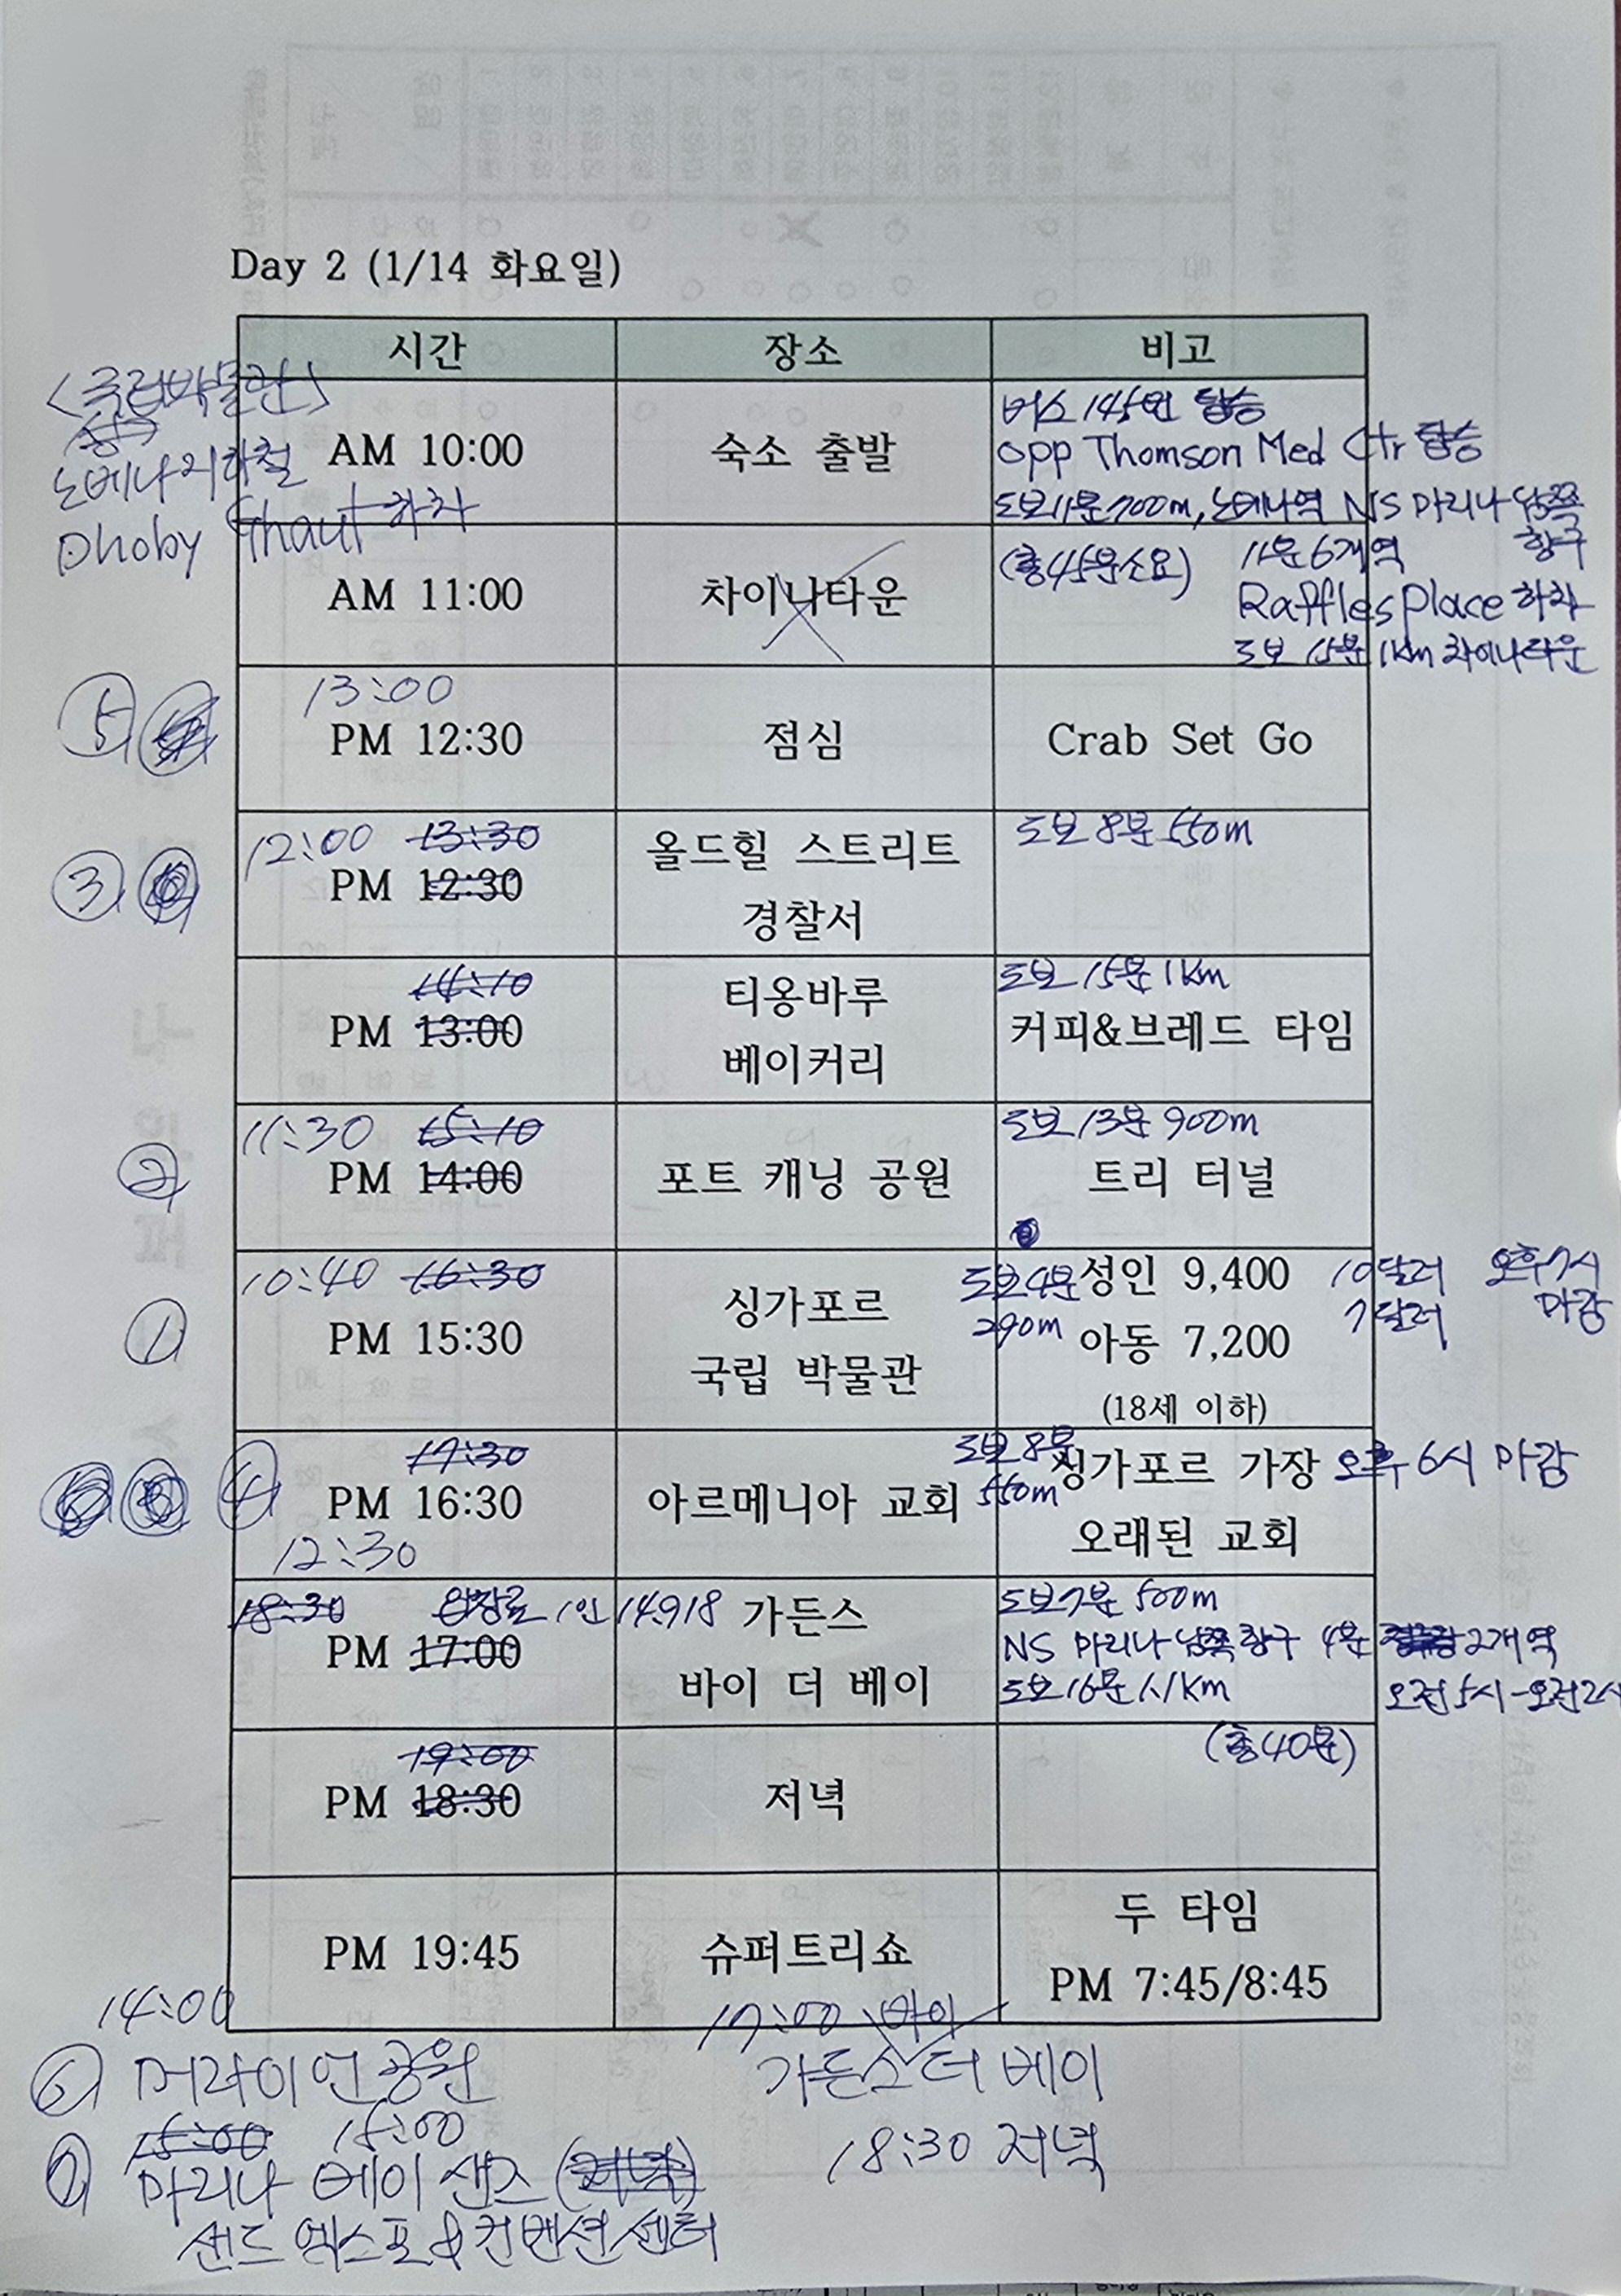 Day 2 (1/14 화요일)
시간 장소 비고
<국립박물관>
노베나지하철
Dhoby Ghaut 하차
AM 10:00 숙소 출발
버스 145번 탑승
opp Thomson Med Ctr 탑승
도보 11분 700m, 노베나역 NS 마리나 남쪽
항구
AM 11:00 차이나타운
(총45분소요) 11분 6개역
Raffles Place 하차
도보 15분 1km 차이나타운
13:00
⑤ PM 12:30 점심 Crab Set Go
12:00 13:30 도보 8분 550m
③ PM 12:30 올드힐 스트리트
경찰서
14:10 도보 15분 1km
PM 13:00 티옹바루
베이커리
커피&브레드 타임
11:30 15:10 도보 13분 900m
② PM 14:00 포트 캐닝 공원 트리 터널
10:40 16:30 도보4분 성인 9,400 10달러 오후7시
① PM 15:30 싱가포르
국립 박물관
290m 아동 7,200 7달러 마감
(18세 이하)
17:30 도보 8분 싱가포르 가장 오후 6시 마감
④ PM 16:30 아르메니아 교회 550m
오래된 교회
12:30
18:30 입장료 1인 14,918 가든스 도보7분 500m
PM 17:00 바이 더 베이
NS 마리나 남쪽 항구 4분 2개역
도보 16분 1.1km 오전5시-오전2시
19:00 (총40분)
PM 18:30 저녁
PM 19:45 슈퍼트리쇼 두 타임
PM 7:45/8:45
14:00 17:00 바이
⑥ 머라이언공원 가든스 더 베이
15:00 15:00 18:30 저녁
⑦ 마리나 베이 샌즈 (저녁)
샌드 엑스포 & 컨벤션 센터